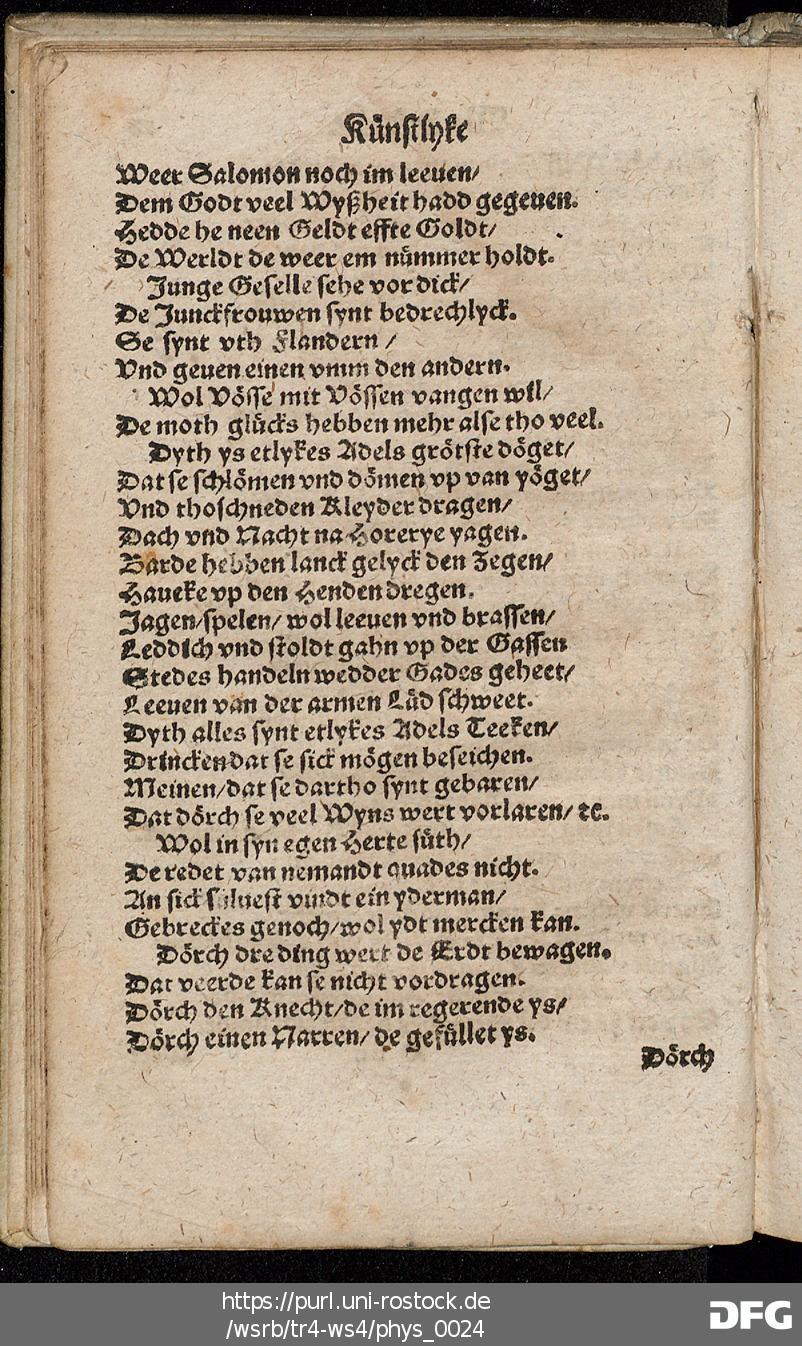 Künstlyke
Weer Salomon noch im leeuen/
Dem Godt veel Wyßheit hadd gegeuen.
Hedde he neen Geldt effte Goldt/
De Werldt de weer em nümmer holdt.
Junge Geselle sehe vor dick/
De Junckfrouwen synt bedrechlyck.
Se synt vth Flandern /
Vnd geuen einen vmm den andern.
Wol Vösse mit Vössen vangen wil/
De moth glücks hebben mehr alse tho veel.
Dyth ys etlykes Adels grötste döget/
Dat se schlömen vnd dömen vp van yöget/
Vnd thoschneden Kleyder dragen/
Dach vnd Nacht na Horerye yagen.
Barde hebben lanck gelyck den Zegen/
Haueke vp den Henden dregen.
Jagen/spelen/ wol leeuen vnd brassen/
Leddich vnd stoldt gahn vp der Gassen
Stedes handeln wedder Gades geheet/
Leeuen van der armen Lüd schweet.
Dyth alles synt etlykes Adels Teeken/
Drincken dat se sick mögen beseichen.
Meinen/dat se dartho synt gebaren/
Dat dörch se veel Wyns wert vorlaren/ ꝛc.
Wol in syn egen Herte süth/
De redet van nemandt quades nicht.
An sick süluest vindt ein yderman/
Gebreckes genoch/wol ydt mercken kan.
Dörch dre ding wert de Erdt bewagen.
Dat veerde kan se nicht vordragen.
Dörch den Knecht/de im regerende ys/
Dörch einen Narren/ de gefüllet ys.
Dörch
https://purl.uni-rostock.de
/wsrb/tr4-ws4/phys_0024
DFG